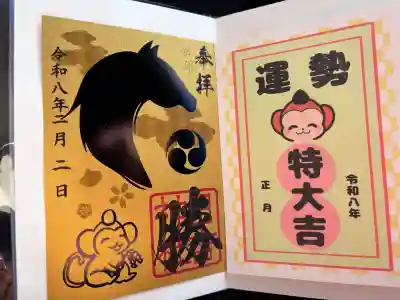 奉拝
令和八年二月二日
勝
運勢
特大吉
令和八年
正月